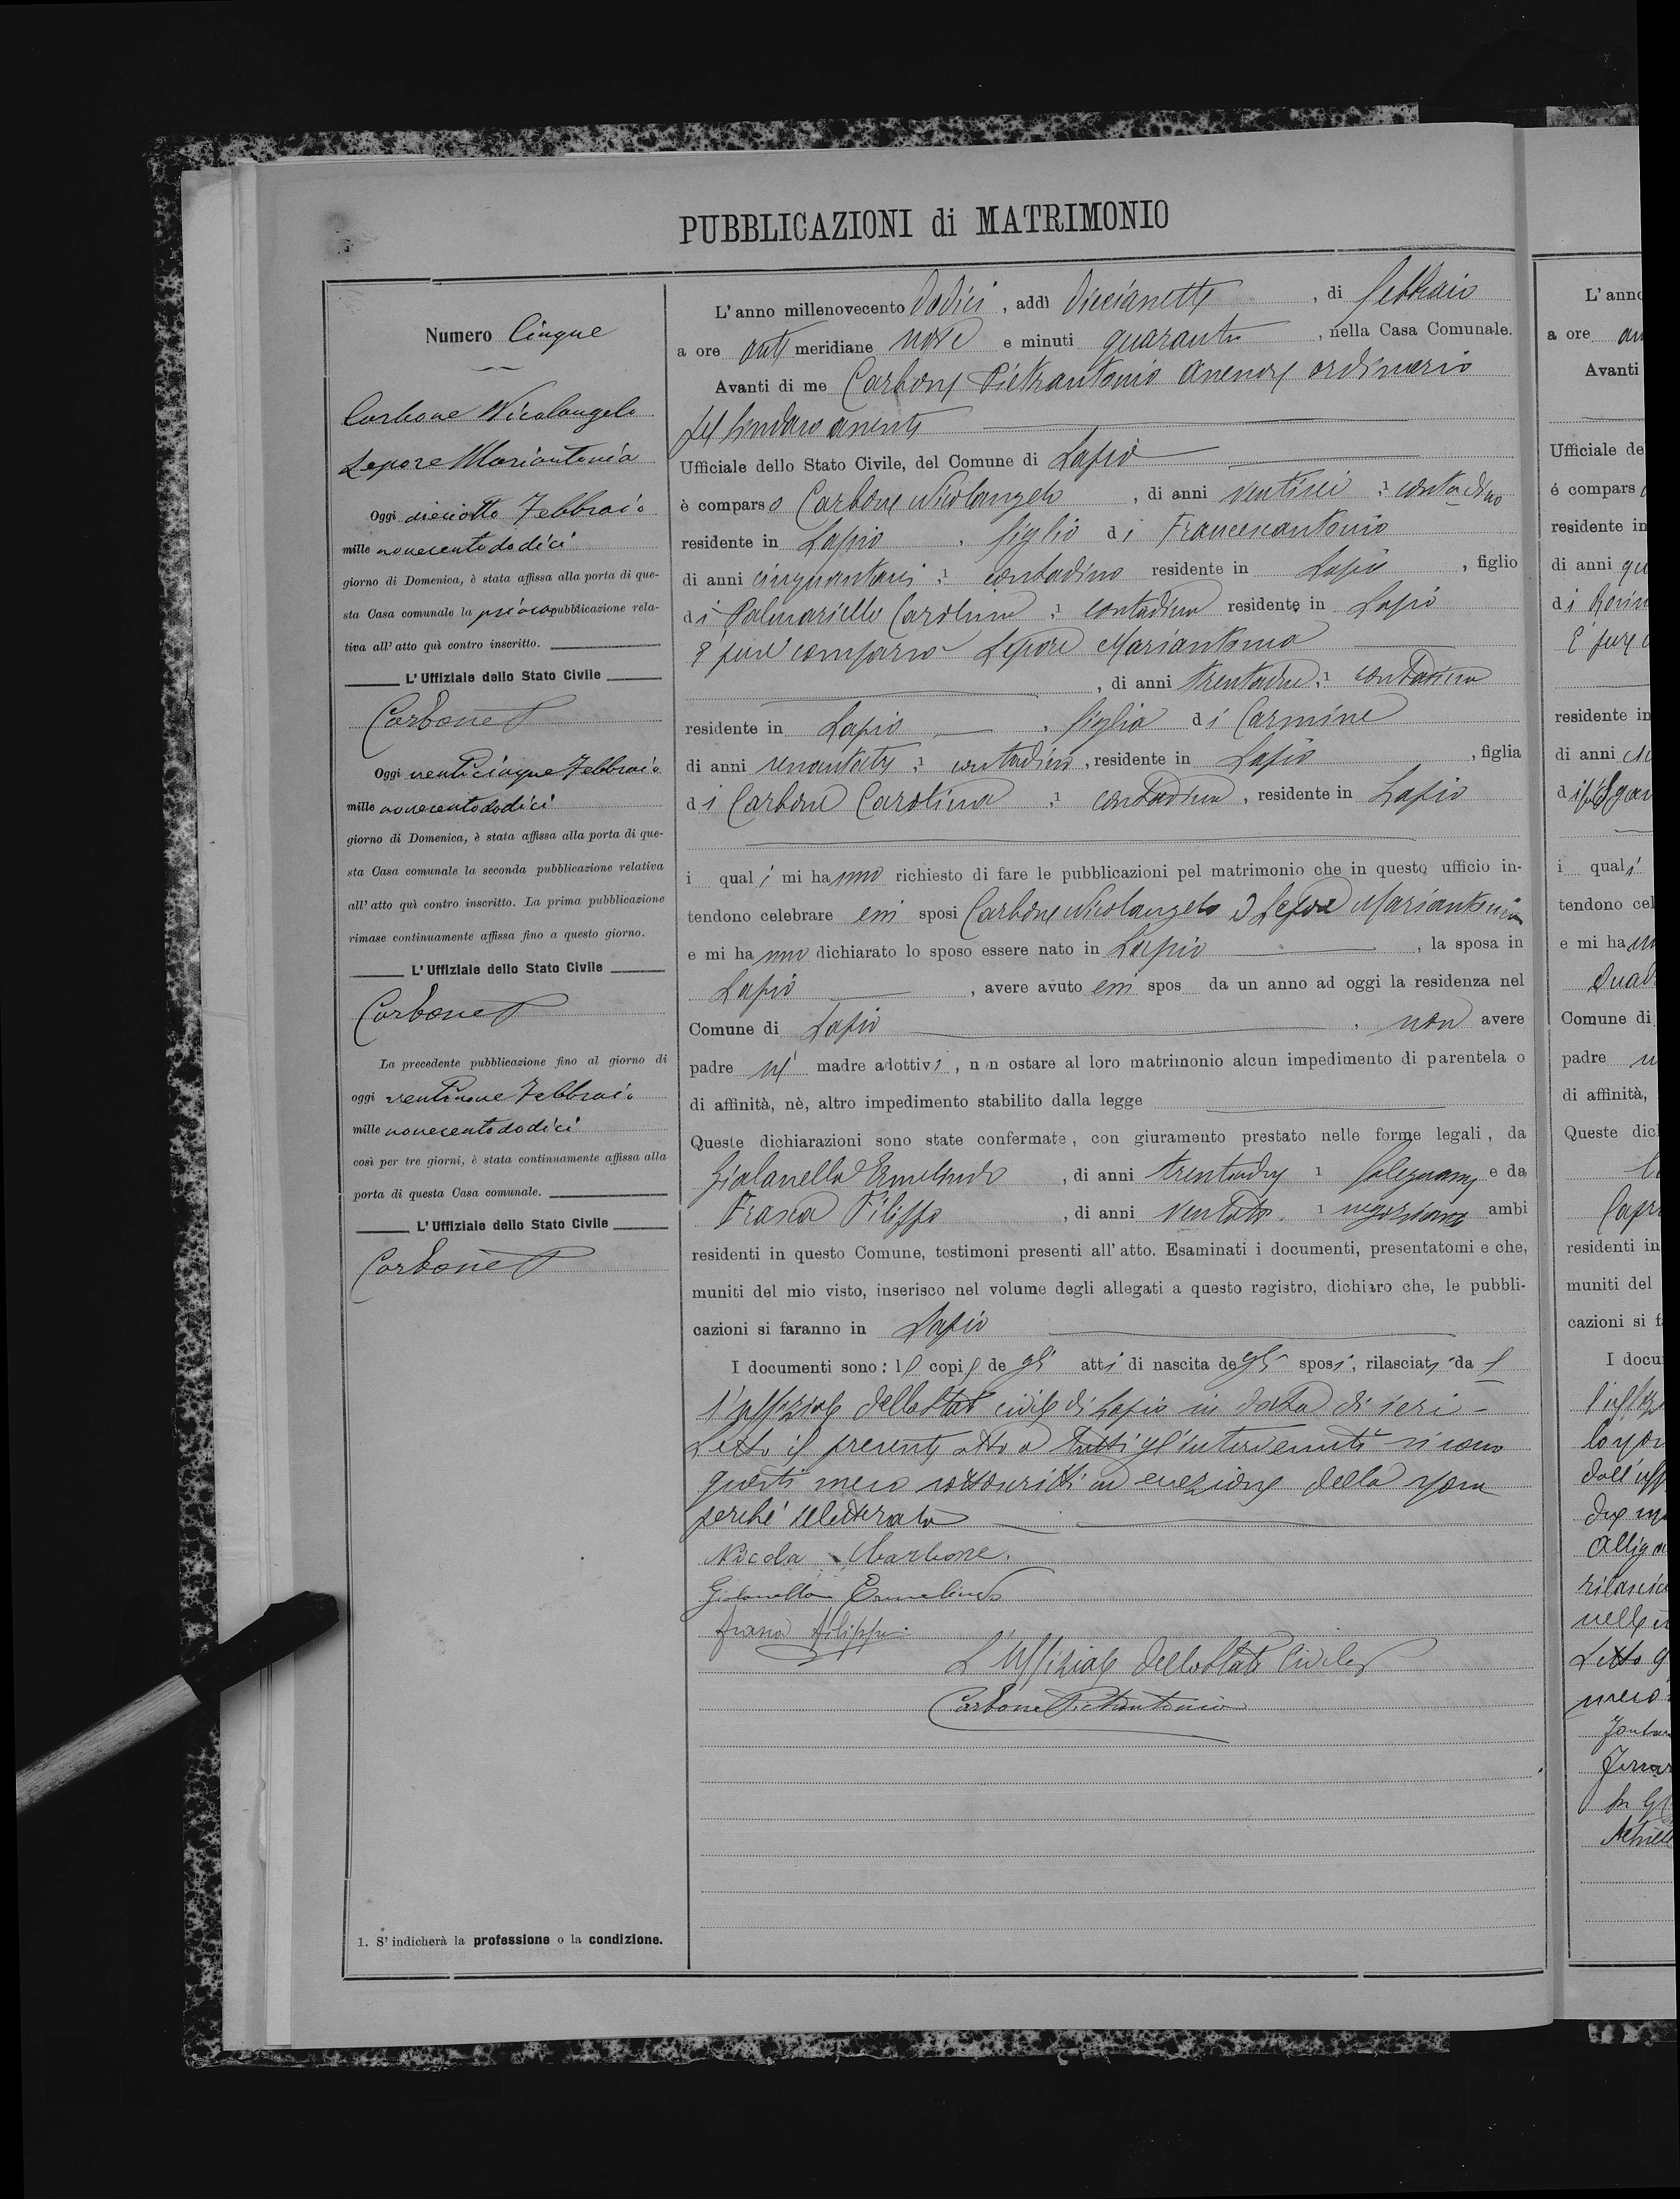 PUBBLICAZIONI di MATRIMONIO
Numero Cinque
Carbone Nicolangelo
Lepore Mariantonia
Oggi dieciotto Febbraio
mille novecentododici
giorno di Domenica, è stata affissa alla porta di que-
sta Casa comunale la prima pubblicazione rela-
tiva all' atto quì contro inscritto.
L' Uffiziale dello Stato Civile
Carbone
Oggi venticinque Febbraio
mille novecentododici
giorno di Domenica, è stata affissa alla porta di que-
sta Casa comunale la seconda pubblicazione relativa
all' atto quì contro inscritto. La prima pubblicazione
rimase continuamente affissa fino a questo giorno.
L' Uffiziale dello Stato Civile
Carbone
La precedente pubblicazione fino al giorno di
oggi ventinove Febbraio
mille novecentododici
così per tre giorni, è stata continuamente affissa alla
porta di questa Casa comunale.
L' Uffiziale dello Stato Civile
Carbone
1. S' indicherà la professione o la condizione.
L' anno millenovecento dodici, addì diecianette, di febbraio
a ore anti meridiane nove e minuti quaranta, nella Casa Comunale.
Avanti di me Carbone Pietrantonio assessore ordinario
del Sindaco assente
Ufficiale dello Stato Civile, del Comune di Lapio
è comparso Carbone Nicolangelo, di anni ventisei 1 contadino
residente in Lapio, figlio di Francescantonio
di anni cinquantasei, 1 contadino residente in Lapio, figlio
di Palmariello Carolina 1 contadina residente in Lapio
È pure comparsa Lepore Mariantonia
, di anni trentadue, 1 contadina
residente in Lapio, figlia di Carmine
di anni, 1 contadino, residente in Lapio, figlia
di Carbone Carolina, 1 contadina, residente in Lapio
i quali mi hanno richiesto di fare le pubblicazioni pel matrimonio che in questo ufficio in-
tendono celebrare essi sposi Carbone Nicolangelo e Lepore Mariantonia
e mi hanno dichiarato lo sposo essere nato in Lapio, la sposa in
Lapio, avere avuto essi spos da un anno ad oggi la residenza nel
Comune di Lapio, non avere
padre né madre adottivi, non ostare al loro matrimonio alcun impedimento di parentela o
di affinità, nè, altro impedimento stabilito dalla legge
Queste dichiarazioni sono state confermate, con giuramento prestato nelle forme legali, da
Giolanella Ermelindo, di anni trentadue 1 falegname e da
Frasca Filippo, di anni ventotto 1 negoziante ambi
residenti in questo Comune, testimoni presenti all' atto. Esaminati i documenti, presentatomi e che,
muniti del mio visto, inserisco nel volume degli allegati a questo registro, dichiaro che, le pubbli-
cazioni si faranno in Lapio
I documenti sono: le copie degli atti di nascita degli sposi, rilasciate dal
l'uffiziale dello Stato civile di Lapio in data di ieri
Letto il presente atto a tutti gl'intervenuti si sono
questi meco sottoscritti ad eccezione della sposa
perché illetterata
Nicola Carbone.
Giolanella Ermelindo
Frasca Filippo
L'Uffiziale dello Stato Civile
Carbone Pietrantonio
L' anno
a ore an
Avanti
Ufficiale de
è compars
residente in
di anni qu
di Rosin
È pure c
residente in
di anni
d
i quali
tendono cel
e mi ha
Comune di
padre n
di affinità,
Queste dic
Capr
residenti in
muniti del
cazioni si f
I docu
l'uff
dall'uff
rilascia
Letto
meco